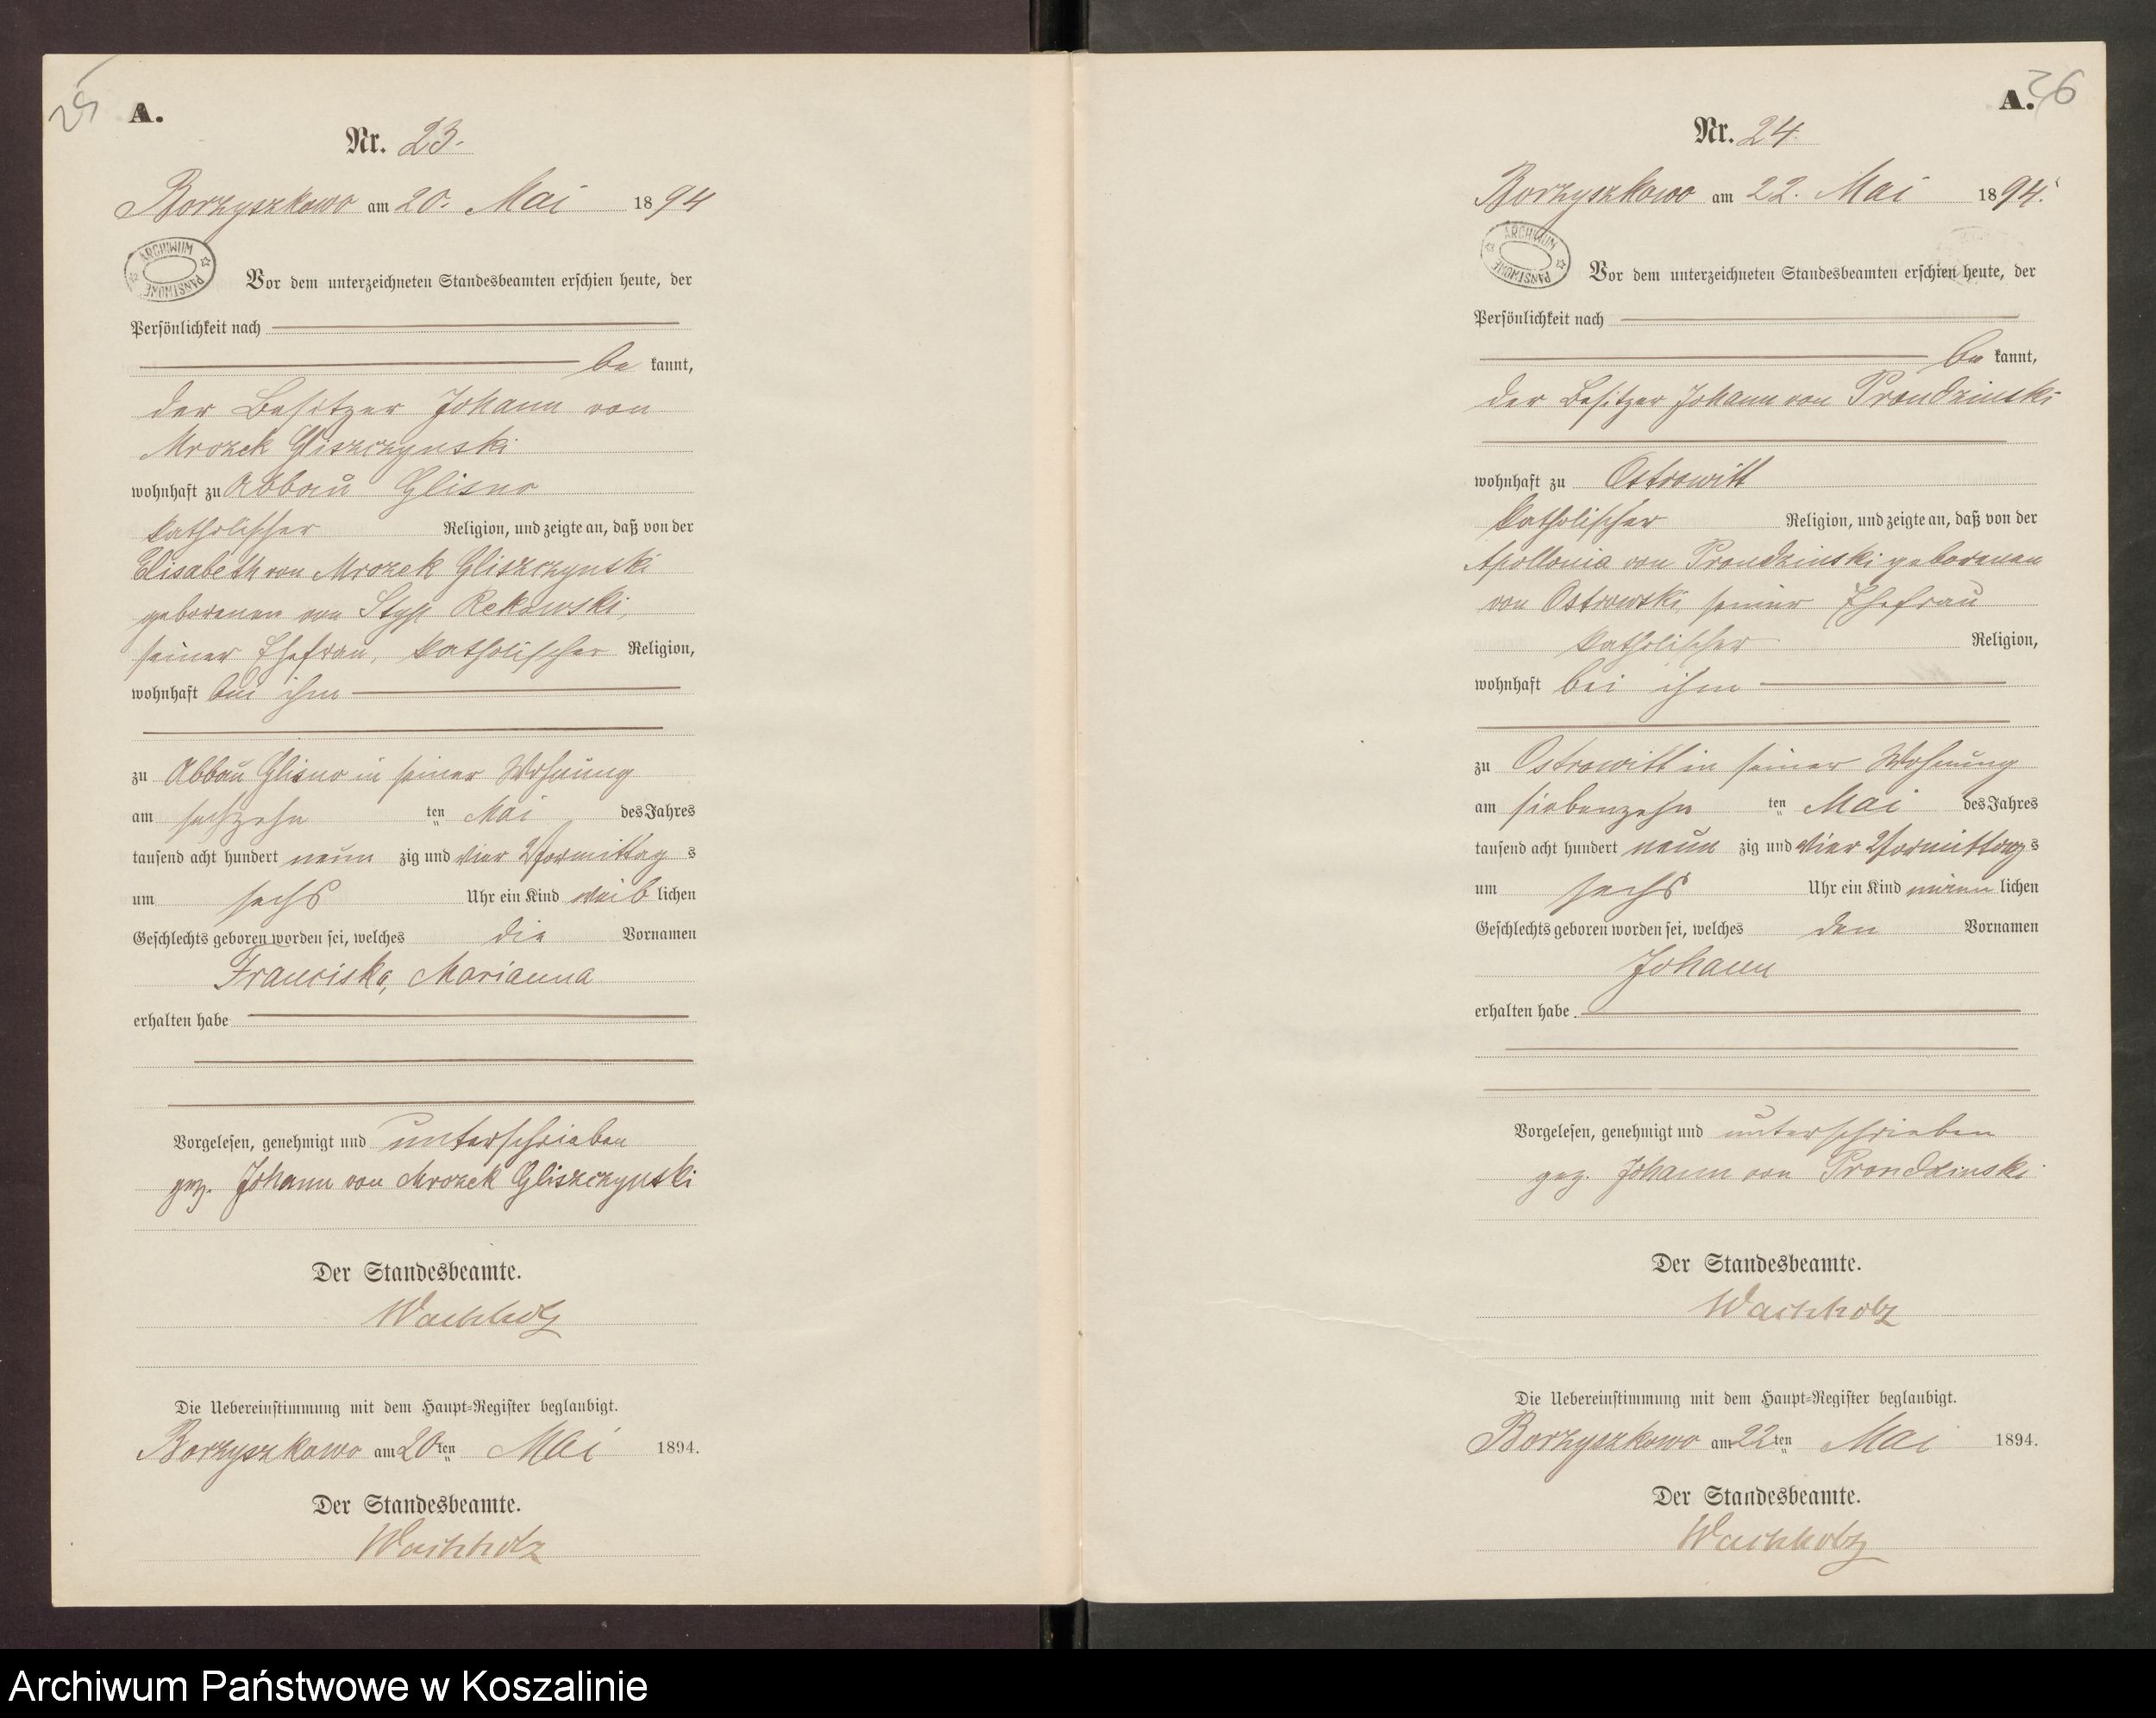 25
A.
Nr. 23.
Borzyszkowo am 20. Mai 1894
ARCHIWUM PAŃSTWOWE
Vor dem unterzeichneten Standesbeamten erschien heute, der
Persönlichkeit nach
be kannt,
der Besitzer Johann von
Mrozek Gliszczynski
wohnhaft zu Abbau Glisno
katholischer Religion, und zeigte an, daß von der
Elisabeth von Mrozek Gliszczynski
geborenen von Styp Rekowski,
seiner Ehefrau, katholischer Religion,
wohnhaft bei ihm
zu Abbau Glisno in seiner Wohnung
am sechzehn ten Mai des Jahres
tausend acht hundert neun zig und vier Vormittag s
um sechs Uhr ein Kind weib lichen
Geschlechts geboren worden sei, welches die Vornamen
Franciska, Marianna
erhalten habe
Vorgelesen, genehmigt und unterschrieben
gez. Johann von Mrozek Gliszczynski
Der Standesbeamte.
Wachholz
Die Uebereinstimmung mit dem Haupt-Register beglaubigt.
Borzyszkowo am 20 ten Mai 1894.
Der Standesbeamte.
Wachholz
A. 26
Nr. 24.
Borzyszkowo am 22. Mai 1894.
ARCHIWUM PAŃSTWOWE
Vor dem unterzeichneten Standesbeamten erschien heute, der
Persönlichkeit nach
be kannt,
der Besitzer Johann von Prondzinski
wohnhaft zu Ostrowitt
katholischer Religion, und zeigte an, daß von der
Apollonia von Prondzinski geborenen
von Ostrowski, seiner Ehefrau
katholischer Religion,
wohnhaft bei ihm
zu Ostrowitt in seiner Wohnung
am siebenzehn ten Mai des Jahres
tausend acht hundert neun zig und vier Vormittag s
um sechs Uhr ein Kind männ lichen
Geschlechts geboren worden sei, welches den Vornamen
Johann
erhalten habe.
Vorgelesen, genehmigt und unterschrieben
gez. Johann von Prondzinski
Der Standesbeamte.
Wachholz
Die Uebereinstimmung mit dem Haupt-Register beglaubigt.
Borzyszkowo am 22 ten Mai 1894.
Der Standesbeamte.
Wachholz
Archiwum Państwowe w Koszalinie